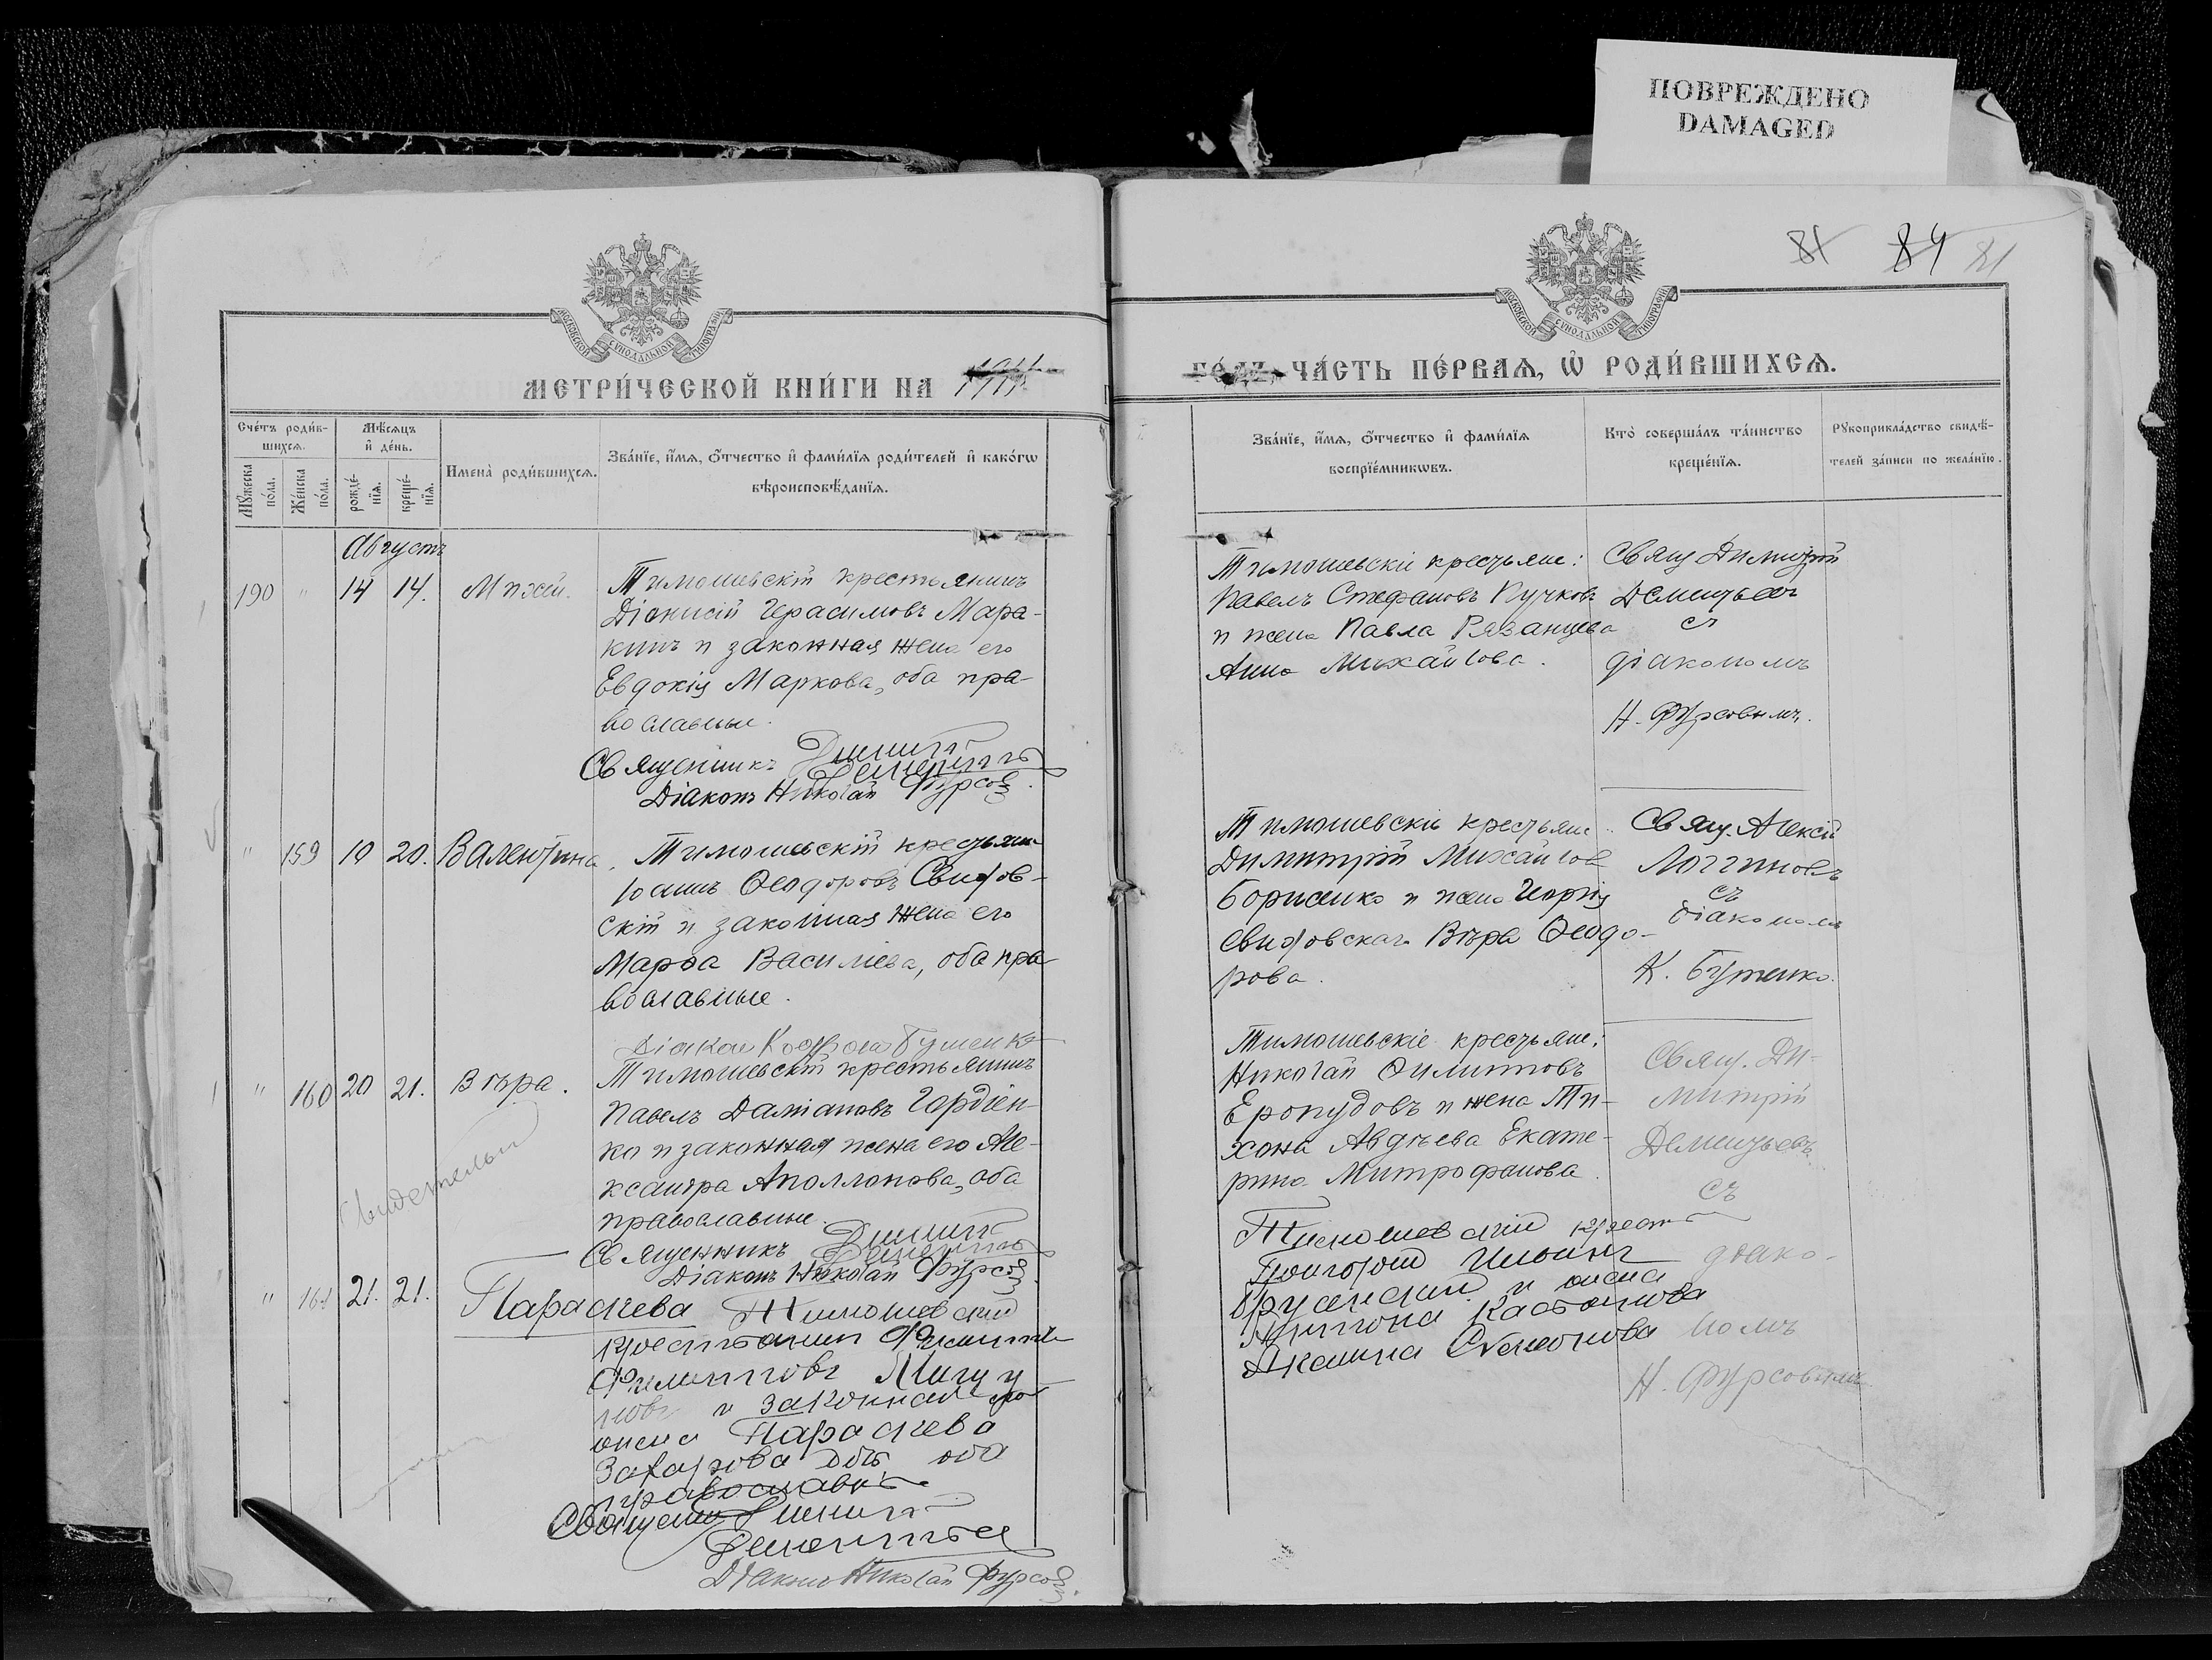 ПОВРЕЖДЕНО
DAMAGED
81 84 81
МОСКОВСКОЙ СѴНОДАЛЬНОЙ ТИПОГРАФІИ
МОСКОВСКОЙ СѴНОДАЛЬНОЙ ТИПОГРАФІИ
МЕТРИ́ЧЕСКОЙ КНИ́ГИ НА 1911
ГО́ДЪ ЧА́СТЬ ПЕ́РВАѦ, Ѡ РОДИ́ВШИХСѦ.
Сче́тъ роди́в-
шихсѧ.
Мꙋ́жеска по́ла.
Же́нска по́ла.
Мѣ́сѧцъ
и де́нь.
рожде́-
нїѧ.
креще́-
нїѧ.
Имена̀ роди́вшихсѧ.
Зва́нїе, и́мѧ, ѻ́тчество и фами́лїѧ роди́телей и како́гѡ
вѣроисповѣ́данїѧ.
Зва́нїе, и́мѧ, ѻ́тчество и фами́лїѧ
воспрїе́мникѡвъ.
Кто̀ соверша́лъ та́инство
креще́нїѧ.
Рꙋкоприкла́дство свидѣ́-
телей за́писи по жела́нїю.
Августъ
190 " 14 14. Михаи.
Тимошевскій крестьянинъ
Діонисій Герасимовъ Мара-
кинъ и законная жена его
Евдокія Маркова, оба пра-
вославные.
Священникъ Димитрій
Дементьевъ
Діаконъ Николай Фурсовъ.
Тимошевскіе крестьяне:
Павелъ Стефановъ Кучковъ
и жена Павла Рязанцева
Анна Михайлова.
Свящ Димитрій
Дементьевъ
съ
діакономъ
Н. Фурсовымъ.
" 159 19 20. Валентина.
Тимошевскій крестьянин
Іоаннъ Ѳеодоровъ
скій и законная жена его
Марѳа Василіева, оба пра
вославные.
Діакон Бутенко
Тимошевскіе крестьяне
Димитрій Михайлов
Борисенко и жена Георгія
Вѣра Ѳеодо-
рова.
Свящ. Алексій
Логгиновъ
съ
діакономъ
К. Бутенко.
" 160 20 21. Вѣра.
Тимошевскій крестьянинъ
Павелъ Даміановъ Гордіен-
ко и законная жена его Але-
ксандра Аполлонова, оба
православные.
Священникъ Димитрій
Дементьевъ
Діаконъ Николай Фурсовъ
Тимошевскіе крестьяне:
Николай Филипповъ
Еропудовъ и жена Ти-
хона Авдѣева Екате-
рина Митрофанова.
Свящ. Ди-
митрій
Дементьевъ
съ
діако-
номъ
Н. Фурсовымъ
" 161 21. 21. Параскева
Тимошевскій
крестьянин Филипп
Филиппов
нов и законная
жена Параскева
Захарова оба
православн
Священ Димитрій
Дементьев
Діаконъ Николай Фурсовъ.
Тимошевскій крест
Григорій
и жена
Акилина Симонова